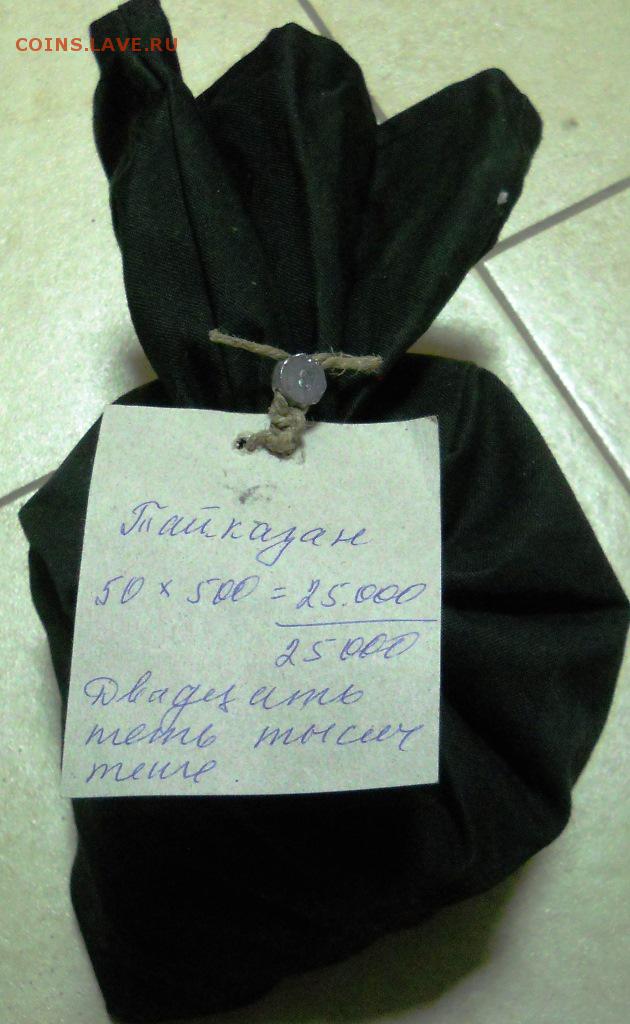 COINS.LAVE.RU
Тайказан
50 × 500 = 25.000
25000
Двадцать
пять тысяч
тенге.